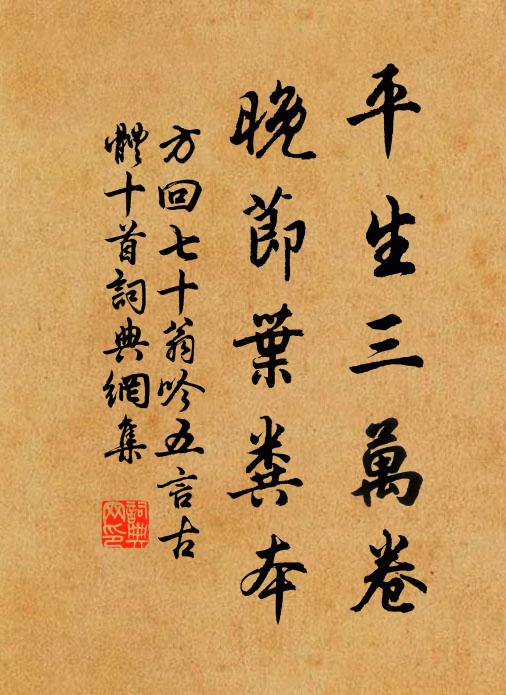 平生三萬卷
晚節葉糞本
方回七十翁吟五言古
體十首詞典網集
詞典網印